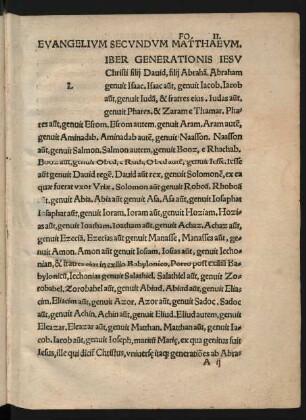 FO. II.
EVANGELIVM SECVNDVM MATTHAEVM.
IBER GENERATIONIS IESV
Christi filij Dauid, filij Abrahã. Abraham
L genuit Isaac. Isaac aũt, genuit Iacob. Iacob
aũt, genuit Iudã, & fratres eius. Iudas aũt,
genuit Phares, & Zaram e Thamar. Pha/
res aũt, genuit Esrom. Esrom autem, genuit Aram. Aram autẽ,
genuit Aminadab. Aminadab autẽ, genuit Naasson. Naasson
aũt, genuit Salmon. Salmon autem, genuit Booz, e Rhachab.
Booz aũt, genuit Obed, e Ruth. Obed autẽ, genuit Iesse. Iesse
aũt, genuit Dauid regẽ. Dauid aũt rex, genuit Solomonẽ, ex ea
quæ fuerat vxor Vriæ. Solomon aũt, genuit Roboã. Rhoboã
aũt, genuit Abia. Abia aũt, genuit Asa. Asa aũt, genuit Iosaphat
Iosaphat aũt, genuit Ioram. Ioram aũt, genuit Hoziam. Hozi/
as aũt, genuit Ioatham. Ioatham aũt, genuit Achaz. Achaz aũt,
genuit Ezeciã. Ezecias aũt, genuit Manasse. Manasses aũt, ge/
nuit Amon. Amon aũt, genuit Iosiam. Iosias aũt, genuit Iecho/
niam, & fratres eius in exilio Babylonico. Porro post exiliũ Ba/
bylonicũ, Iechonias genuit Salathiel. Salathiel aũt, genuit Zo/
robabel. Zorobabel aũt, genuit Abiud. Abiud aũt, genuit Elia/
cim. Eliacim aũt, genuit Azor. Azor aũt, genuit Sadoc. Sadoc
aũt, genuit Achin. Achin aũt, genuit Eliud. Eliud autem, genuit
Eleazar. Eleazar aũt, genuit Matthan. Matthan aũt, genuit Ia/
cob. Iacob aũt, genuit Ioseph, maritũ Mariæ, ex qua genitus fuit
Iesus, ille qui dicit̃ Christus, vniuersæ itaq; generatiões ab Abra/
A ij